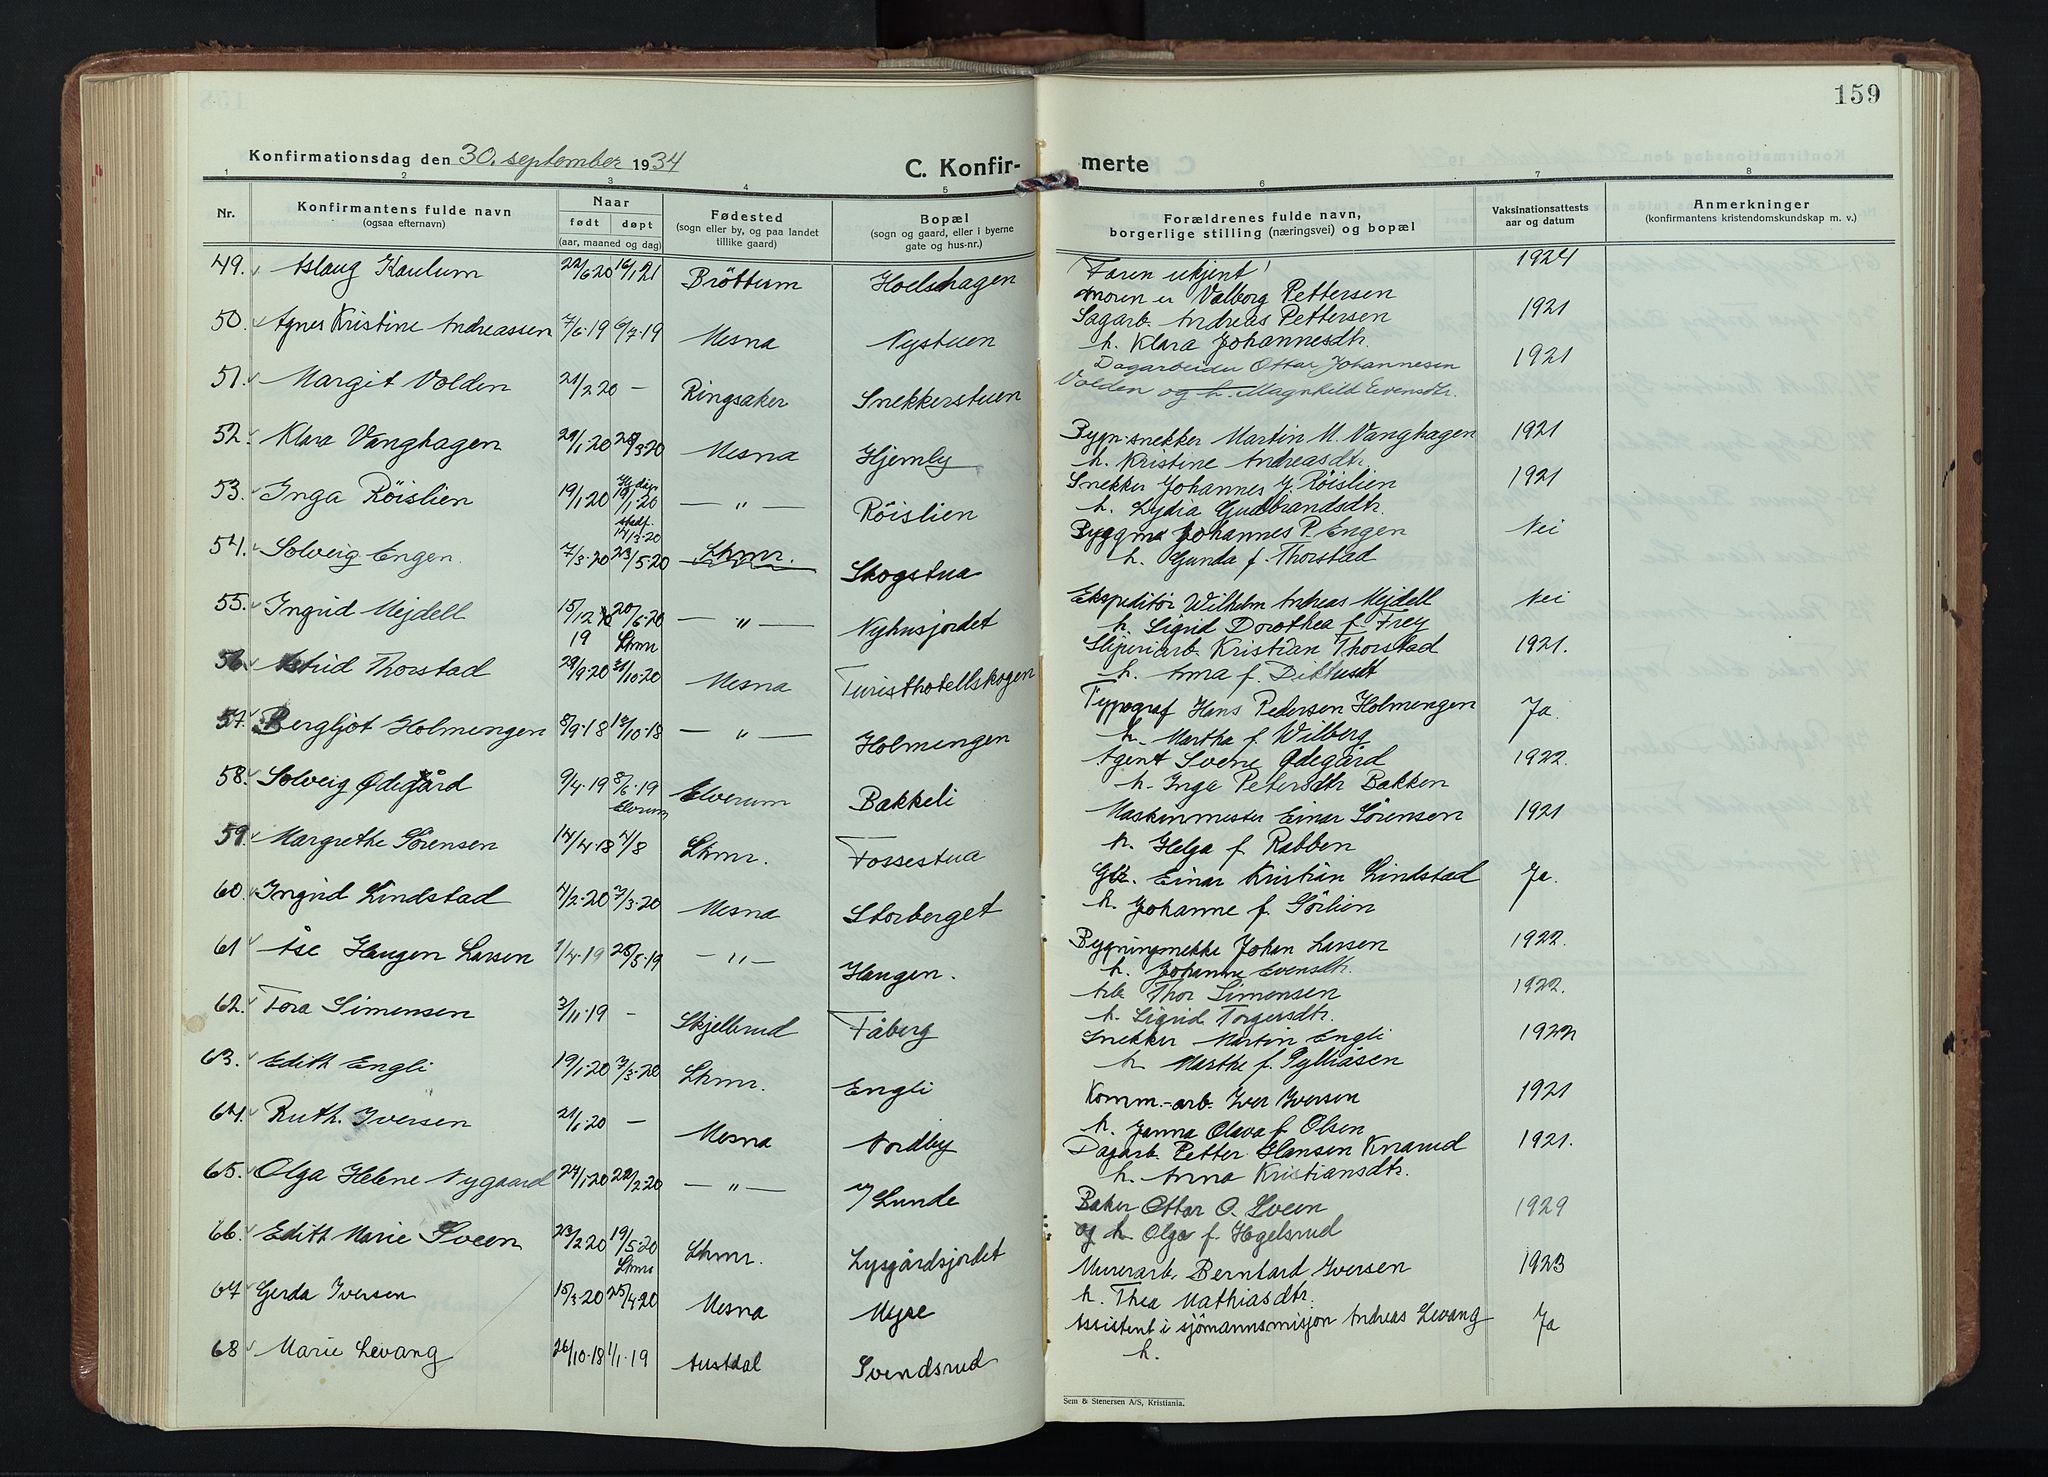 159
Konfirmationsdag den 30. september 1934
C. Konfir-merte
1 2 3 4 5 6 7 8
Nr. Konfirmantens fulde navn (ogsaa efternavn) Naar født døpt (aar, maaned og dag) Fødested (sogn eller by, og paa landet tillike gaard) Bopæl (sogn og gaard, eller i byerne gate og hus-nr.) Forældrenes fulde navn, borgerlige stilling (næringsvei) og bopæl Vaksinationsattests aar og datum Anmerkninger (konfirmantens kristendomskundskap m. v.)
49. Aslaug Kaulum 22/6 20 16/1 21 Bröttum Hoelshagen Faren ukjent! 1924
moren er Valborg Pettersen
50. Agnes Kristine Andreassen 7/6·19 6/7·19 Mesna Nystuen Sagarb. Andreas Pettersen 1921
h. Klara Johannesdtr.
51. Margit Volden 21/2 20 – Ringsaker Snekkerstuen Dagarbeider Ottar Johannesen 1921
Volden og h. Magnhild Evensdtr.
52. Klara Vanghagen 29/1·20 28/3·20 Mesna Hjemly Bygn·snekker Martin M. Vanghagen 1921
h. Kristine Andreasdtr.
53. Inga Röislien 19/1 20 Hj.døp. 19/1·20 stadf. 14/3·20 — " — Röislien Snekker Johannes J. Röislien 1921
h. Lydia Gudbrandsdtr.
54. Solveig Engen. 7/3·20 23/5·20 Lhmr. Skogstua Byggm. Johannes P. Engen Nei
h. Gunda f. Thorstad
55. Ingrid Mejdell 15/12 19 20/6·20 Lhmr — " — Nyhusjordet Ekspeditør Wilhelm Andreas Mejdell Nei
h. Sigrid Dorothea f. Frey
56. Astrid Thorstad 29/9·20 31/10·20 Mesna Turisthotellskogen Sliperiarb. Kristian Thorstad 1921.
h. Anna f.
57. Bergljot Holmengen 8/9·18 13/10·18 — " — Holmengen Typograf Hans Pedersen Holmengen Ja.
h. Martha f. Wilberg
58. Solveig Ødegård 9/4·19 8/6·19 Elverum Elverum Bakkeli Agent Svene Ødegård 1922.
h. Inga Petersdtr Bakken
59. Margrethe Sørensen 14/4·18 4/8 Lhmr. Fossestua Maskinmester Einar Sørensen 1921
h. Helga f. Rabben
60. Ingrid Lindstad 4/2·20 7/3·20 Mesna Storberget Gbr. Einar Kristian Lindstad Ja.
h. Johanne f. Sörlien
61 Åse Haugen Larsen 1/4·19 28/5·19 — " — Haugen. Johan Larsen 1922.
h. Johanne Evensdtr.
62. Tora Simensen 3/11·19 – Skjellerud Fåberg Arb. Thor Simensen 1922.
h. Sigrid Torgersdtr.
63. Edith Engli 19/1·20 7/3·20 Lhmr. Engli Snekker Martin Engli 1922
h. Marthe f. Pyllåsen
64. Ruth. Iversen 21/1·20 – Mesna Nordby Komm.-arb. Iver Iversen 1921
h. Janna Olava f. Olsen
65. Olga Helene Nygaard 24/1 20 22/2·20 — " — Lunde Dagarb. Petter Hansen Knarud 1921.
h. Anna Kristiansdtr.
66. Edith Marie Sveen 23/2 20 19/5·20 Lhmr Lhmr. Lysgårdsjordet Baker Ottar O. Sveen 1929
og h. Olga f. Hagelsrud
67 Gerda Iversen 15/3·20 25/4 20 Mesna Myre Murerarb. Bernhard Iversen 1923
h. Thea Mathiasdtr.
68 Marie Levang 26/10·18 1/1·19 Austdal Svendsrud Assistent i sjömannsmisjon Andreas Levang Ja
h.
Sem & Stenersen A/S, Kristiania.